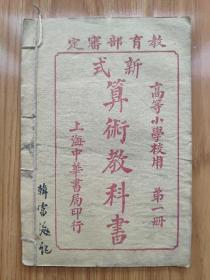 教育部審定
高等小學校用　第一冊
新式
算術教科書
上海中華書局印行
韓雷海記